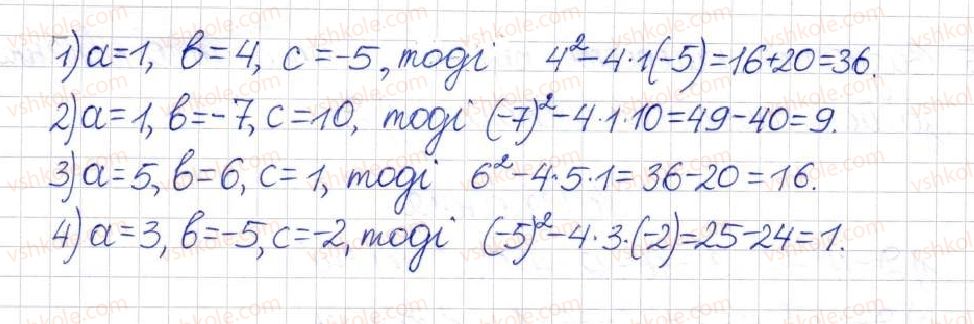 1) a=1, b=4, c=-5, тоді 4²-4·1(-5)=16+20=36.
2) a=1, b=-7, c=10, тоді (-7)²-4·1·10=49-40=9.
3) a=5, b=6, c=1, тоді 6²-4·5·1=36-20=16.
4) a=3, b=-5, c=-2, тоді (-5)²-4·3·(-2)=25-24=1.